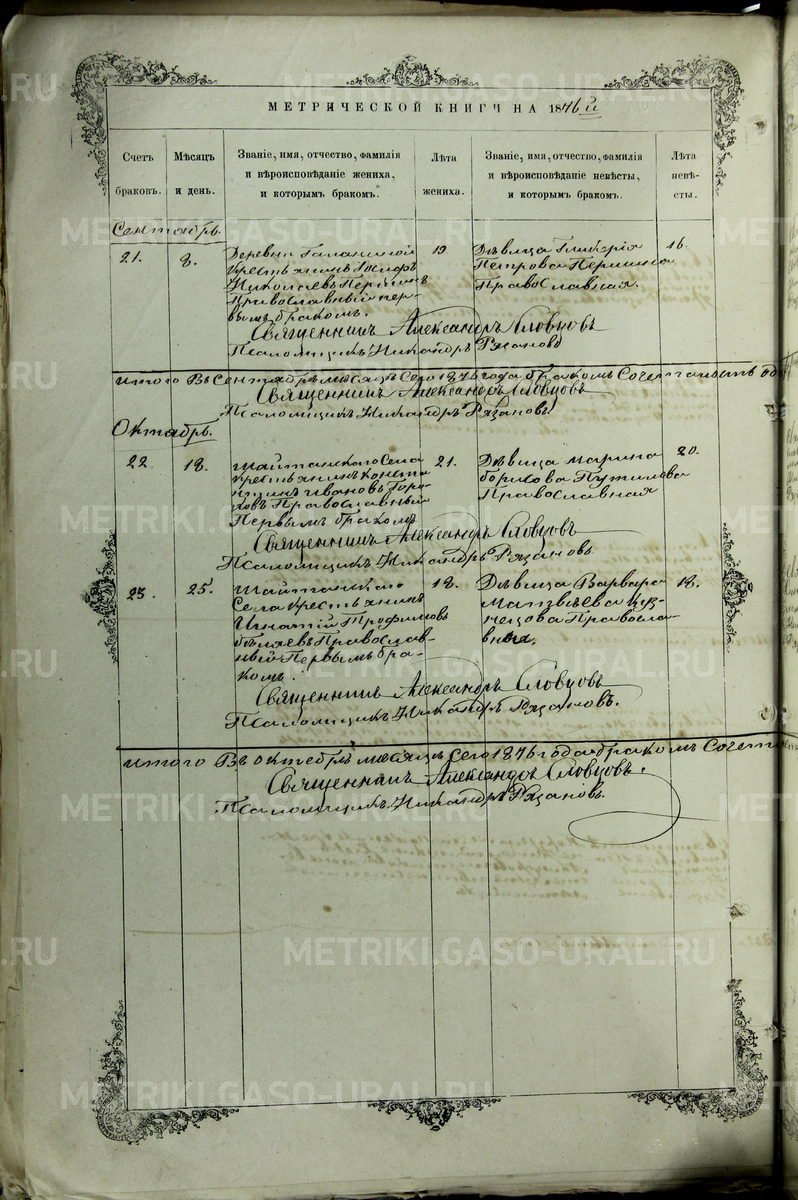 МЕТРИЧЕСКОЙ КНИГИ НА 1876 й
Счетъ браковъ.
Мѣсяцъ и день.
Званіе, имя, отчество, фамилія и вѣроисповѣданіе жениха, и которымъ бракомъ.
Лѣта жениха.
Званіе, имя, отчество, фамилія и вѣроисповѣданіе невѣсты, и которымъ бракомъ.
Лѣта невѣсты.
Сентябрь
21. 8.
Деревни Галаниной
крестьянинъ Іосифъ
Николаевъ Першинъ
Православный пер-
вымъ бракомъ.
19
Дѣвица Гликерія
Петрова Першина
Православная.
16.
Священникъ Александръ Словцовъ
Псаломщикъ Никандръ Рязановъ
итого въ Сентябрѣ мѣсяцѣ сего 1876 года бракомъ Сочетались
Священникъ Александръ Словцовъ
Псаломщикъ Никандръ Рязановъ
Октябрь.
22 18.
Шайтанскаго Села
крестьянинъ Конста
нтинъ Ивановъ
Православный
Первымъ бракомъ
21.
Дѣвица Марина
борисова Путилова
Православная
20.
Священникъ Александръ Словцовъ
Псаломщикъ Никандръ Рязановъ
23. 25.
Шайтанскаго
Села крестьянинъ
Игнатій Трофимовъ
бѣляевъ Православ-
ный Первымъ бра-
комъ.
18.
Дѣвица Варвара
Матвѣева Куз-
нецова Правосла-
вная.
18.
Священникъ Александръ Словцовъ
Псаломщикъ Никандръ Рязановъ.
итого Въ октябрѣ мѣсяцѣ Сего 1876 года бракомъ Сочет
Священникъ Александръ Словцовъ.
Псаломщикъ Никандръ Рязановъ.
METRIKI.GASO-URAL.RU